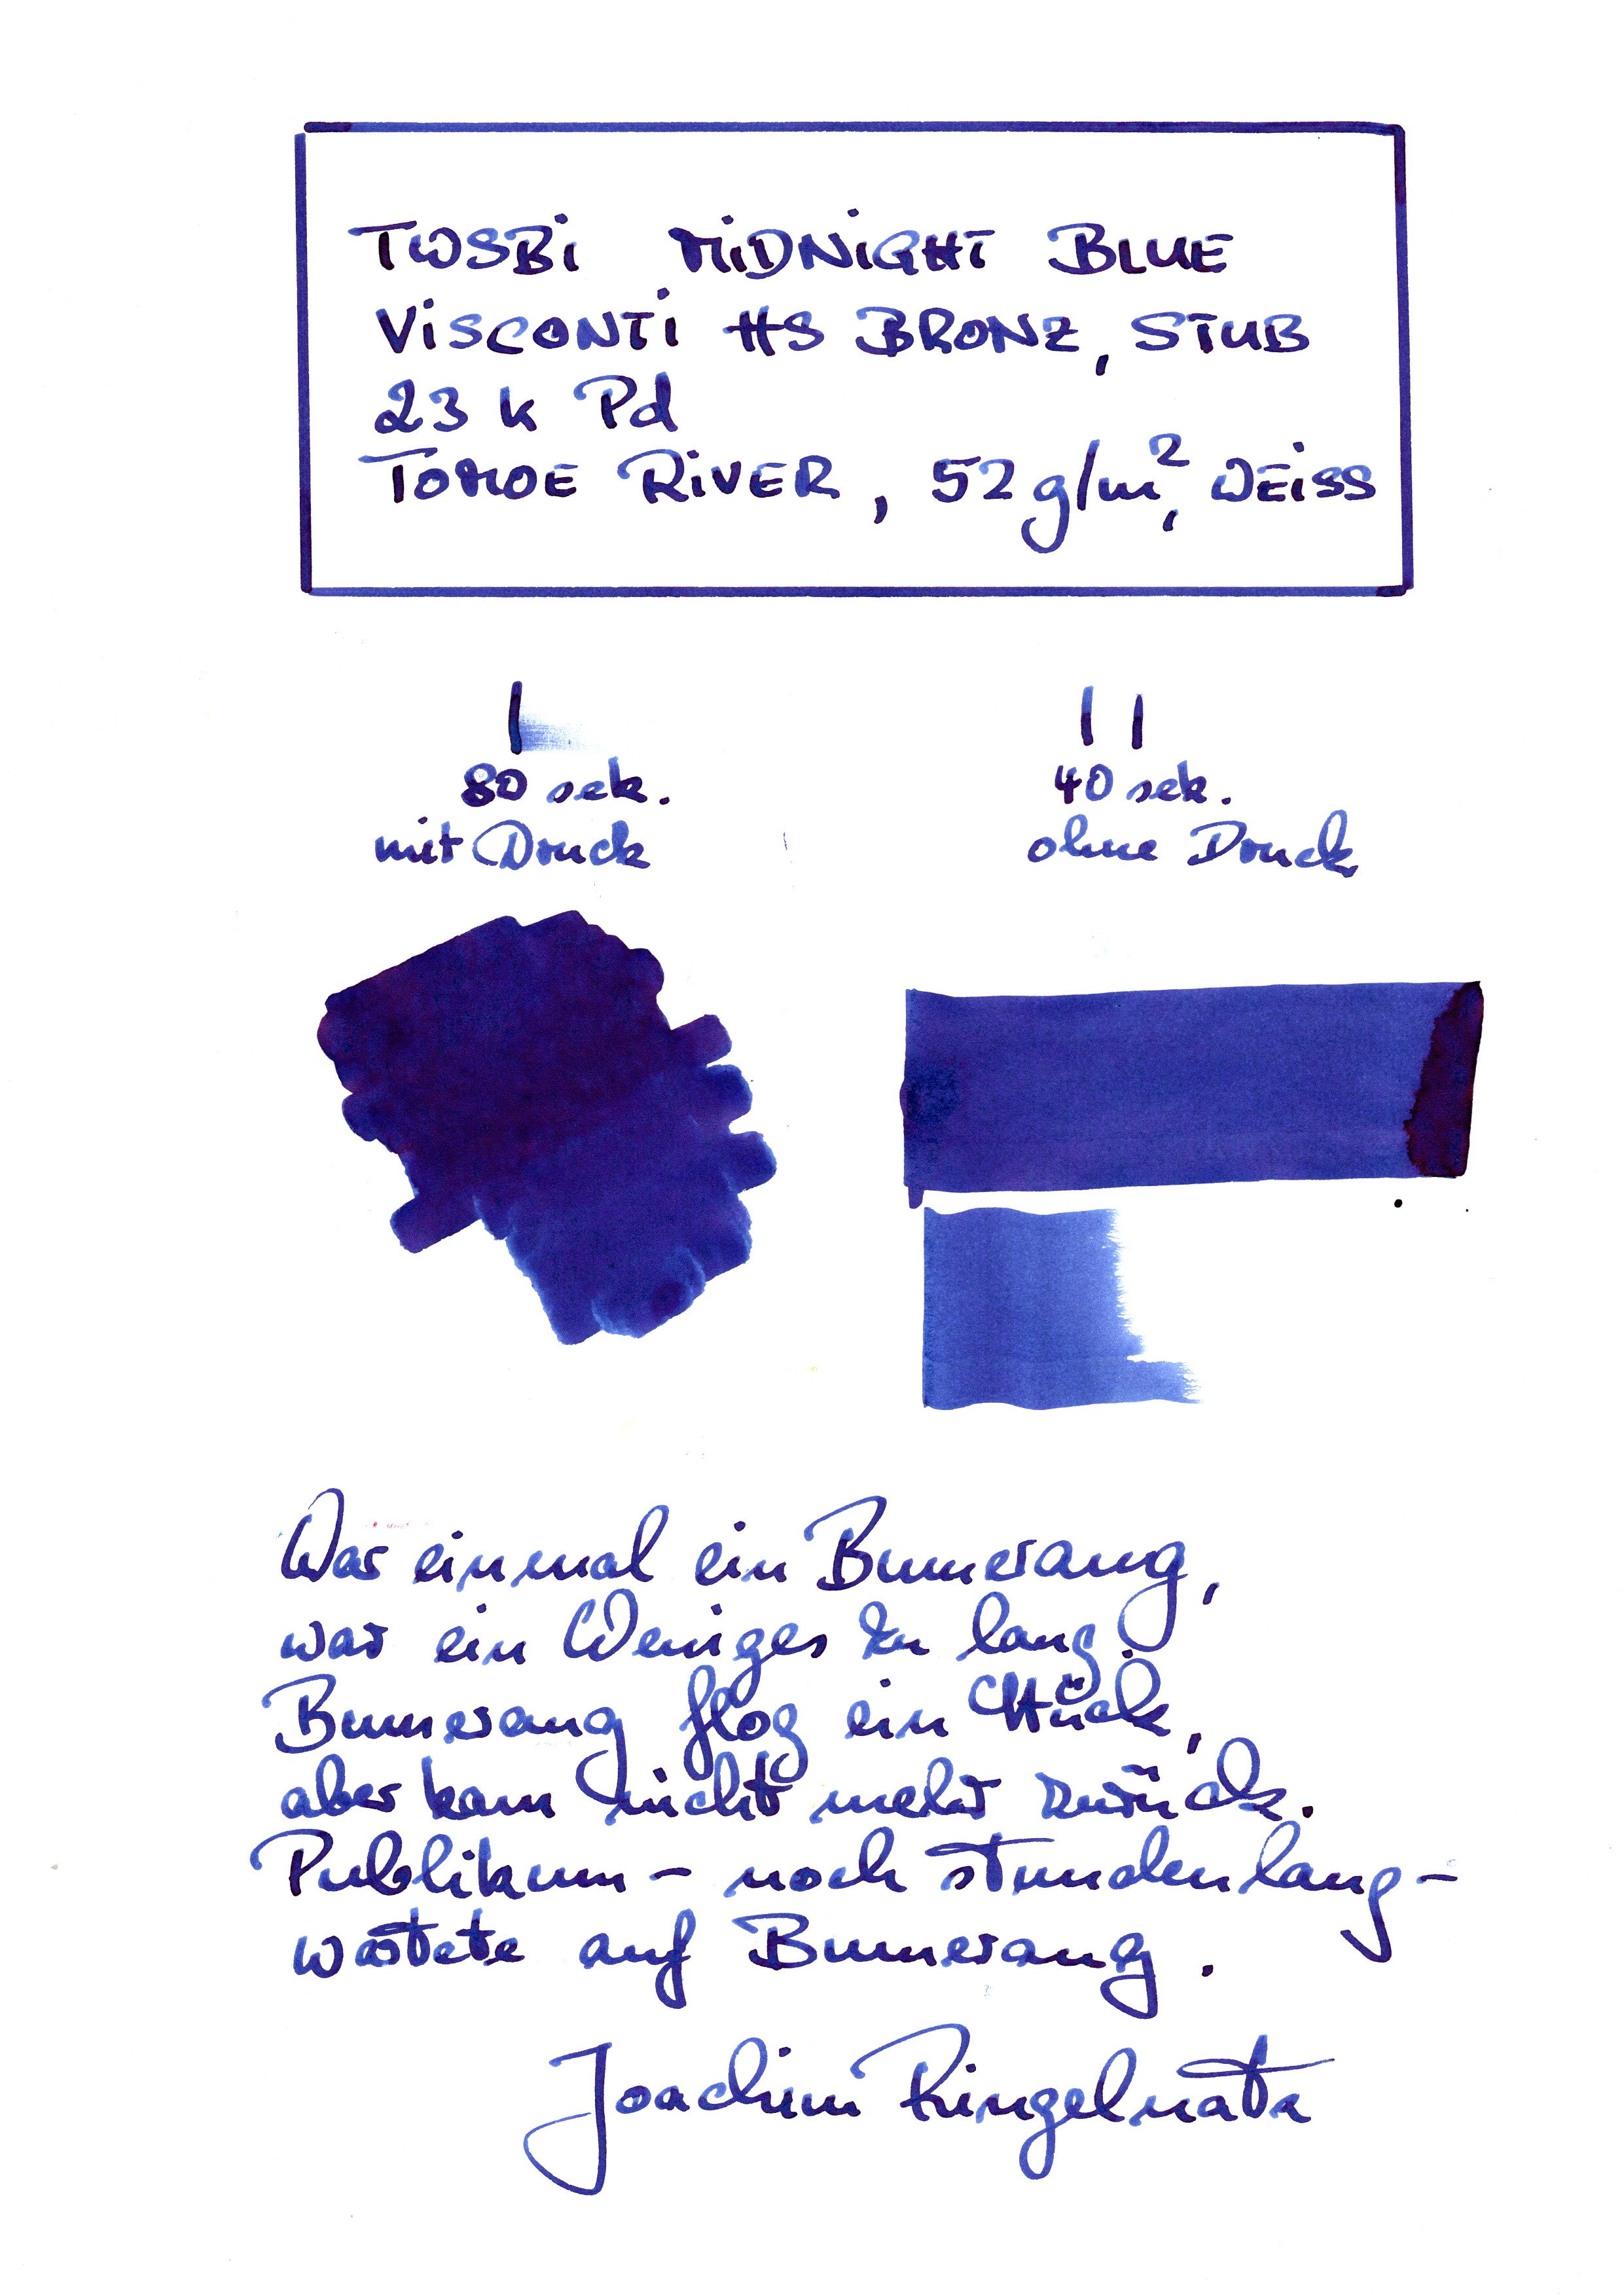 TWSBi MiDNiGHT BLUE
ViSCONTi HS BRONZ, STUB
23 k Pd
TOMOE RiVER, 52 g/m², WEiSS
80 sek.
mit Druck
40 sek.
ohne Druck
War einmal ein Bumerang,
war ein Weniges zu lang.
Bumerang flog ein Stück,
aber kam nicht mehr zurück.
Publikum – noch stundenlang –
wartete auf Bumerang.
Joachim Ringelnatz